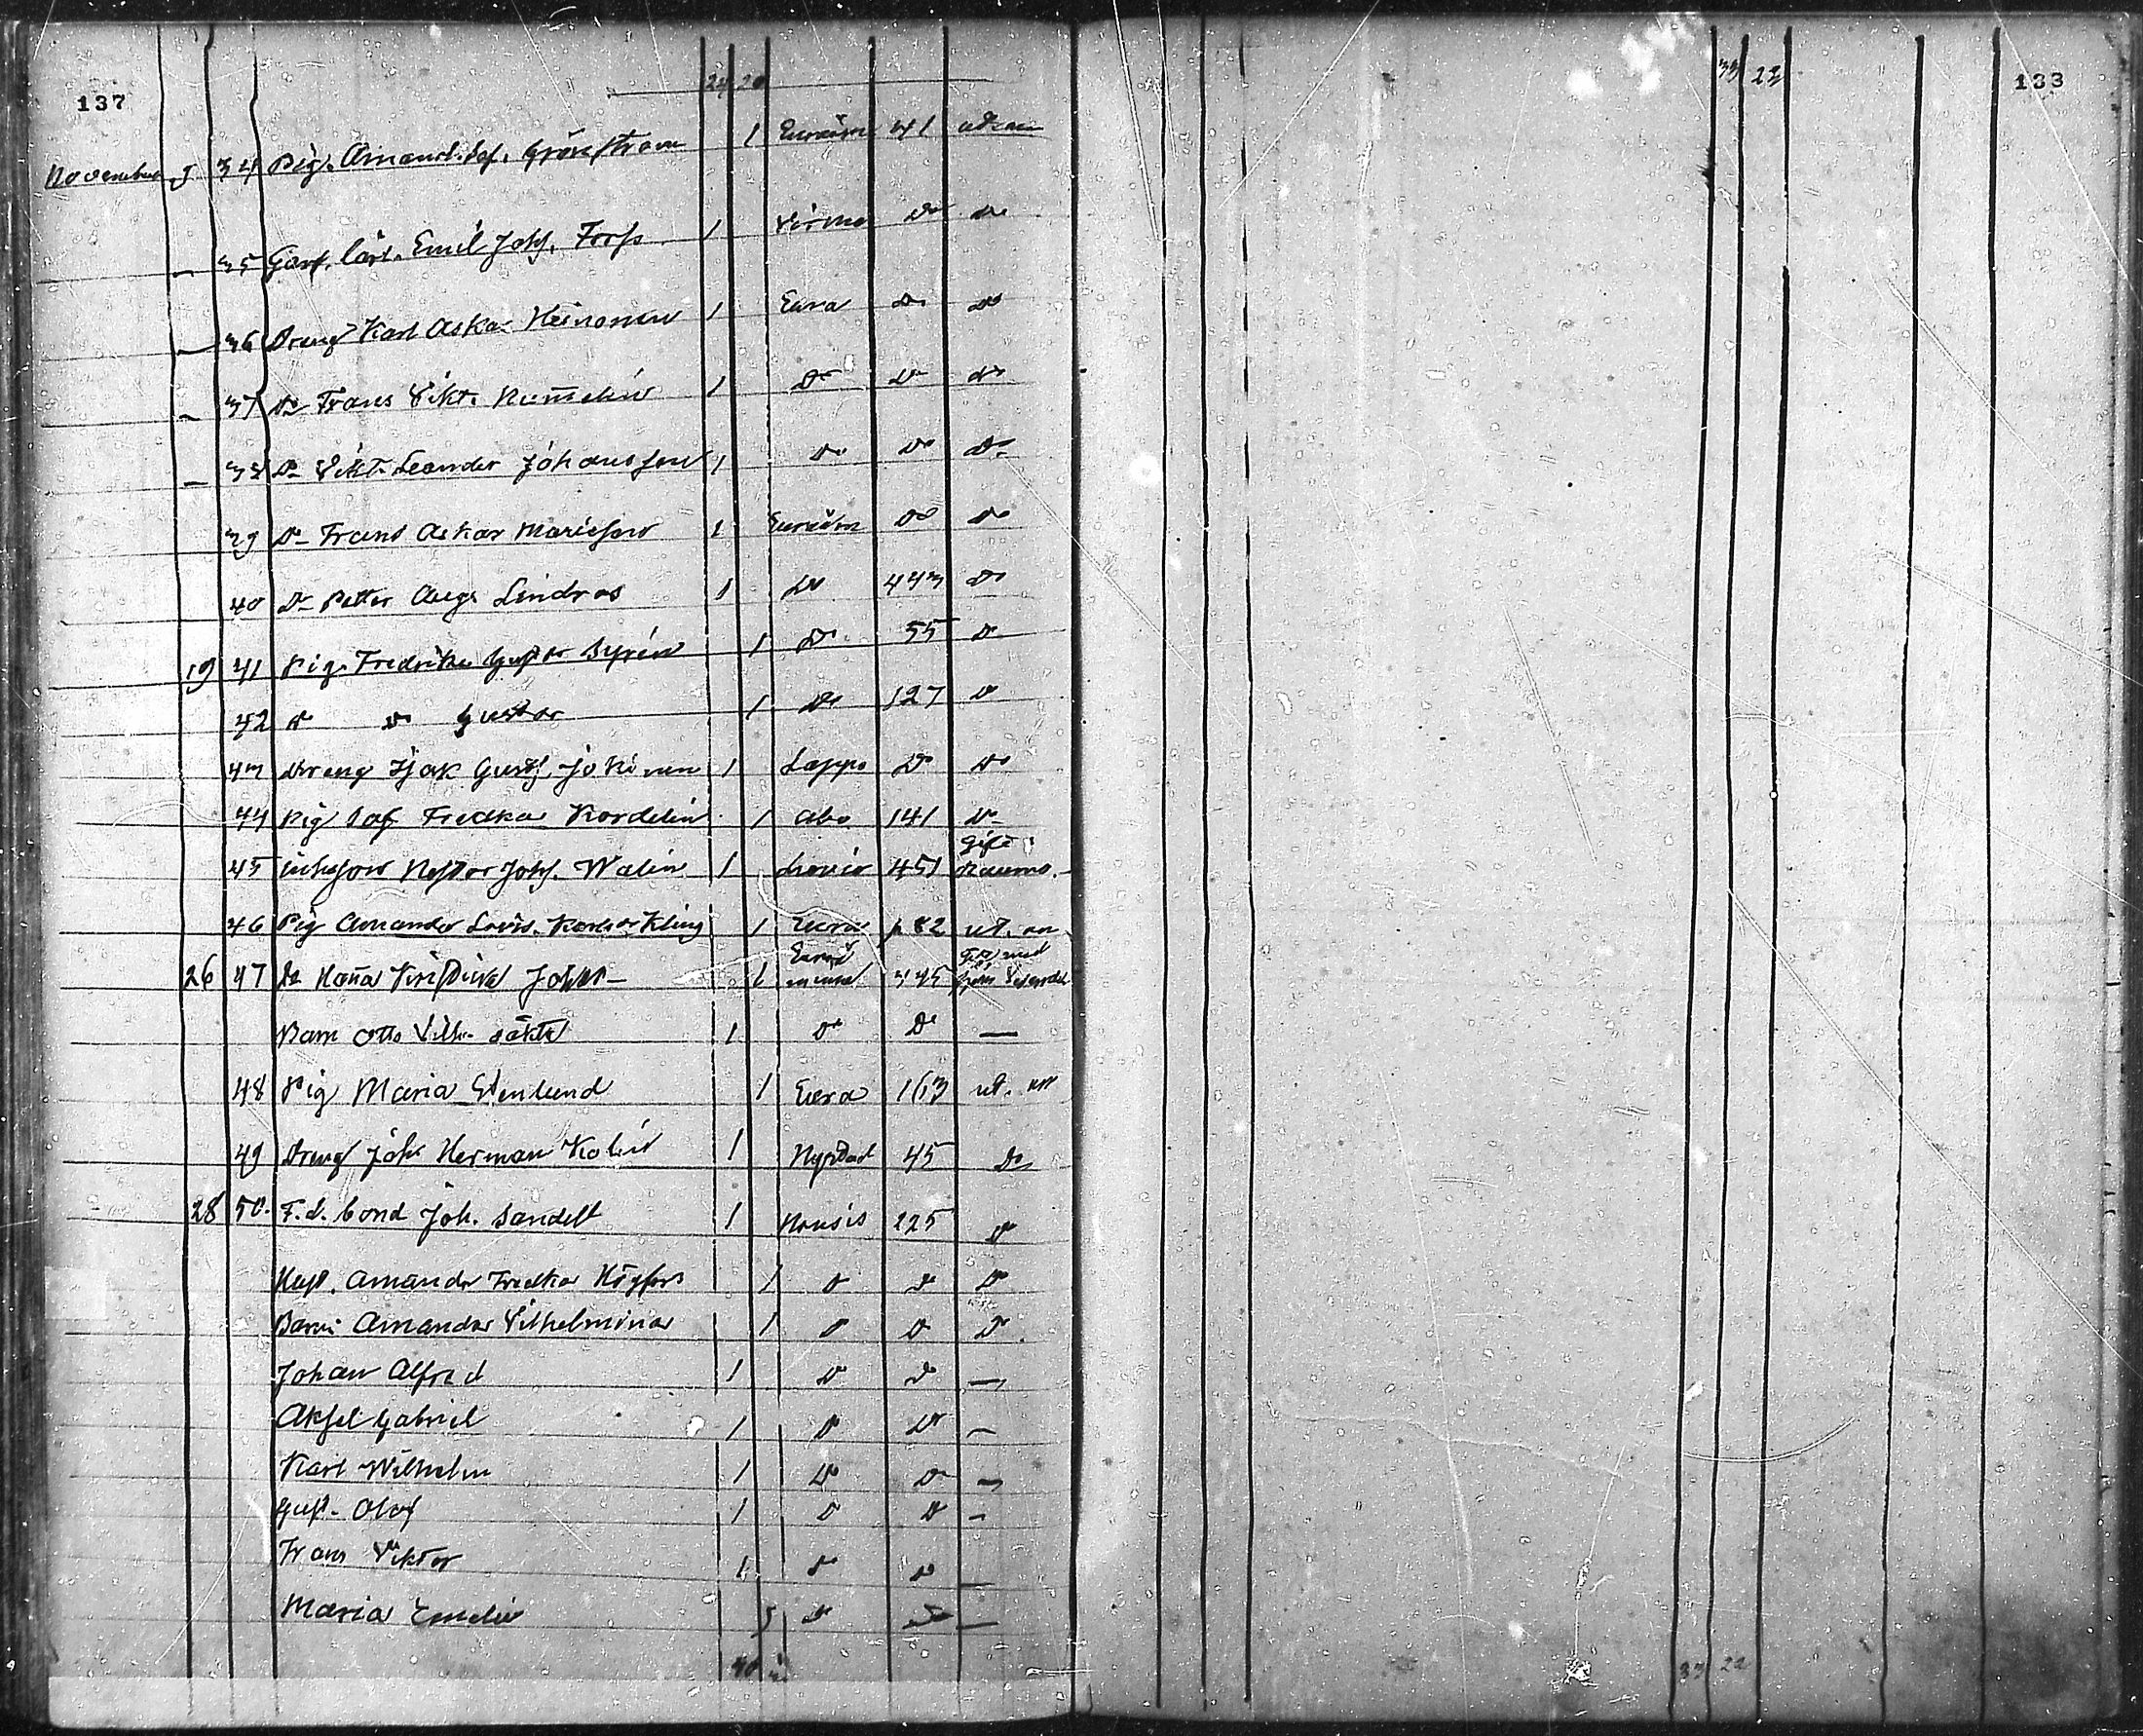 137
24 20
November 5 34 Pig. Amand. Sof. Grönstrom 1 Euraåm 41 utan
— 35 Garf. lärl. Emil Joh. Forss 1 Virmo Do Do
— 36 Dreng Karl Oskar Heinonen 1 Eura Do Do
— 37 Do Frans Vikt. Nummelin 1 Do Do Do
— 38 Do Vikt. Leander Johansson 1 Do Do Do
39 Do Frans Oskar 1 Euraåm Do Do
40 Do Petter Aug. Lindros 1 Do 443 Do
19 41 Pig. Fredrika Gustdr Syrén 1 Do 55 Do
42 Do Do Gustdr 1 Do 127 Do
43 Dreng Isak Gust. Jokinen 1 Lappo Do Do
44 Pig Sof Fredka Nordelin 1 Abo 141 Do
45 Nestor Joh. Walin 1 451 gift Raumo
46 Pig Amanda Lovis. Karlsdr Kling 1 Eura p 82 ut. an
26 47 Do Kristina Johdr 1 Eura 345 med
Barn Otto Vilh. 1 Do Do —
48 Pig Maria Stenlund 1 Eura 163 ut. an
49 Dreng Joh Herman Kolin 1 Nystad 45 Do
28 50. F.d. bond Joh. Sandell 1 Nousis 225 Do
Hust. Amanda Fredka Högfors 1 Do Do Do
Barn Amanda Vilhelmina 1 Do Do Do
Johan Alfred 1 Do Do —
Aksel Gabriel 1 Do Do —
Karl Wilhelm 1 Do Do —
Gust. Olof 1 Do Do —
Frans Viktor 1 Do Do —
Maria Emelie 1 Do Do —
133
33 23
33 22